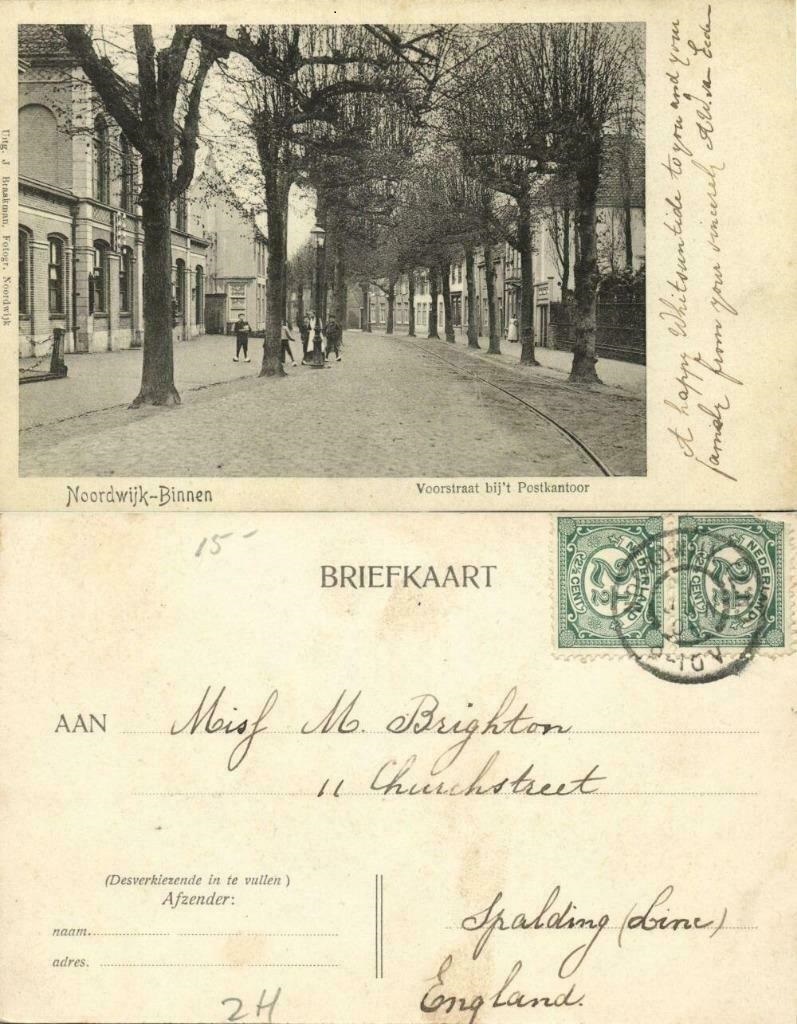 A happy Whitsuntide to you and your
famile from your sincerely A.W. van Eeden
Uitg. J Braakman, Fotogr. Noordwijk
Noordwijk-Binnen
Voorstraat bij't Postkantoor
15-
BRIEFKAART
NEDERLAND
2½
2½ CENT
NEDERLAND
2½
2½ CENT
AAN Misf M. Brighton
11 Churchstreet
(Desverkiezende in te vullen)
Afzender:
naam.
adres.
Spalding (Linc)
England.
2H